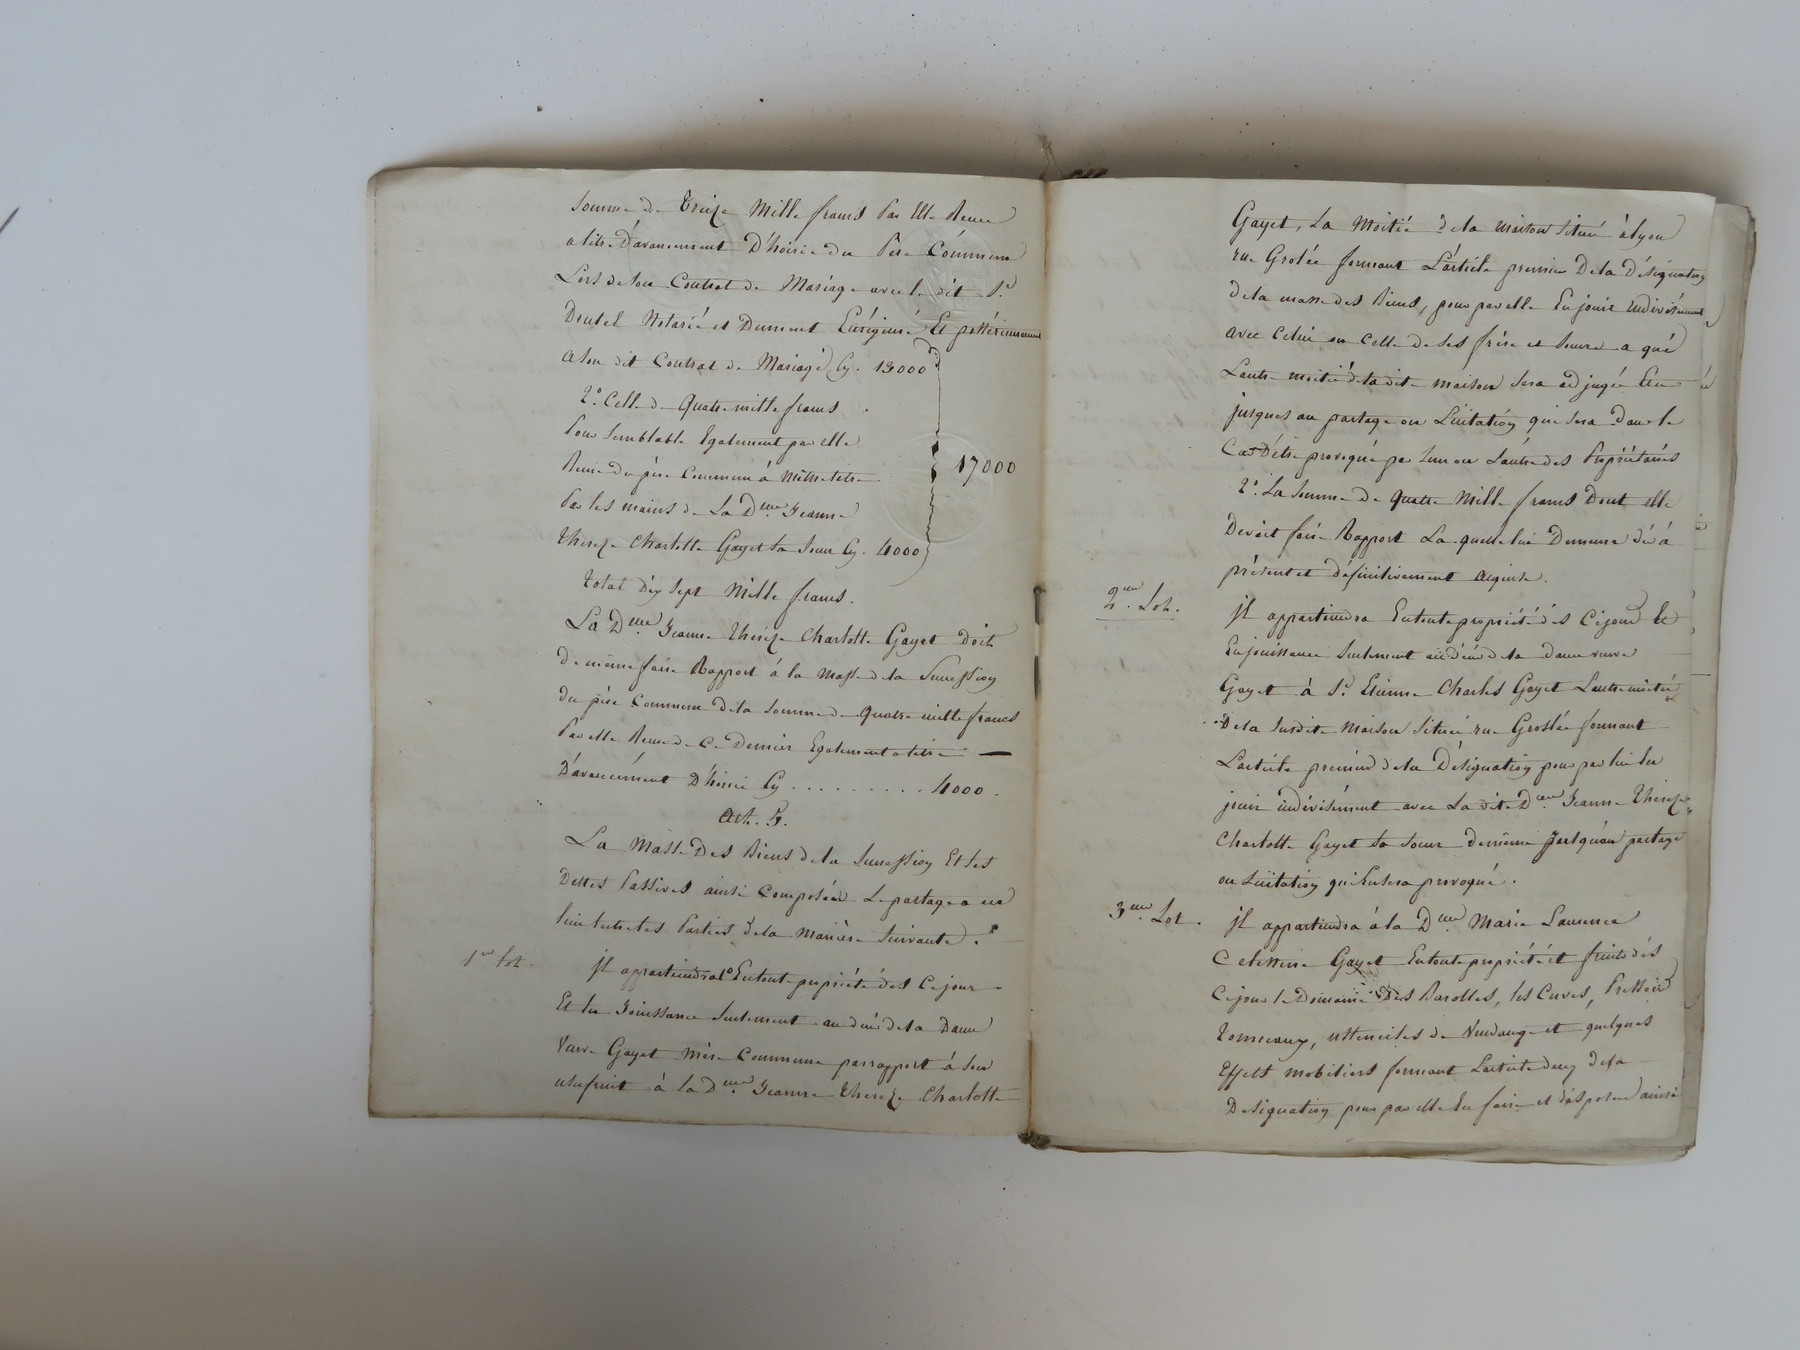 somme de Treize Mille francs Par Elle Reçue
a titre d'avancement D'hoirie du Père Commun
Lors de son Contrat de Mariage avec le dit Sr
Notarié et Dument Enregistré Et postérieurement
a son dit Contrat de Mariage Cy. 13000
2° Celle de Quatre mille francs
Pour semblable Egalement par elle
Reçue du père Commun à même titre
Par les mains de La Dme Jeanne
Thereze Charlotte Gayet sa soeur Cy. 4000
17000
Total dix sept Mille francs.
La Dme Jeanne Thereze Charlotte Gayet doit
de même faire Rapport à la Masse de la Succession
du père Commun de la somme de quatre mille francs
Par elle Reçue de Ce Dernier Egalement a titre
D'avancement D'hoirie Cy ......... 4000.
Art. 5.
La Masse Des Biens de la Succession Et les
Dettes Passives ainsi Composées Le partage a eu
lieu entre les Parties de la Manière Suivante.
1er Lot.
il appartiendra 1° En toute propriété dès Ce jour
Et En Jouissance Seulement au décès de la Dame
Veuve Gayet Mère Commune par rapport à son
usufruit à la Dme Jeanne Thereze Charlotte
Gayet, La Moitié de la maison située à Lyon
rue Grolée formant L'article premier De la Désignation
de la masse des Biens, pour par elle En jouir indivisément
avec Celui ou Celle de ses frère et soeur a qui
L'autre moitié de la dite maison sera adjugée Eu
jusques au partage ou Licitation qui sera Dans le
Cas D'être provoqué par l'un ou L'autre des Propriétaires
2°. La Somme de quatre Mille francs Dont elle
Devoit faire Rapport La quelle lui Demeure dès à
présent et définitivement acquise.
2me. Lot.
il appartiendra En toute propriété dès Ce jour Et
En jouissance seulement au décès de la dame veuve
Gayet à Sr. Etienne Charles Gayet L'autre moitié
De la susdite Maison Située rue Groslée formant
L'article premier de la Désignation pour par lui En
jouir indivisément avec La dite Dme. Jeanne Thereze
Charlotte Gayet sa soeur de même jusqu'au partage
ou Licitation qui En sera provoqué.
3me. Lot.
il appartiendra à la Dme. Marie Laurence
Celestine Gayet En toute propriété et fruits dès
Ce jour le Domaine Des Barolles, les Cuves, Pressoir
Tonneaux, ustenciles de Vendange et quelques
Effets mobiliers formant L'article deux de la
Désignation pour par elle En faire et disposer ainsi